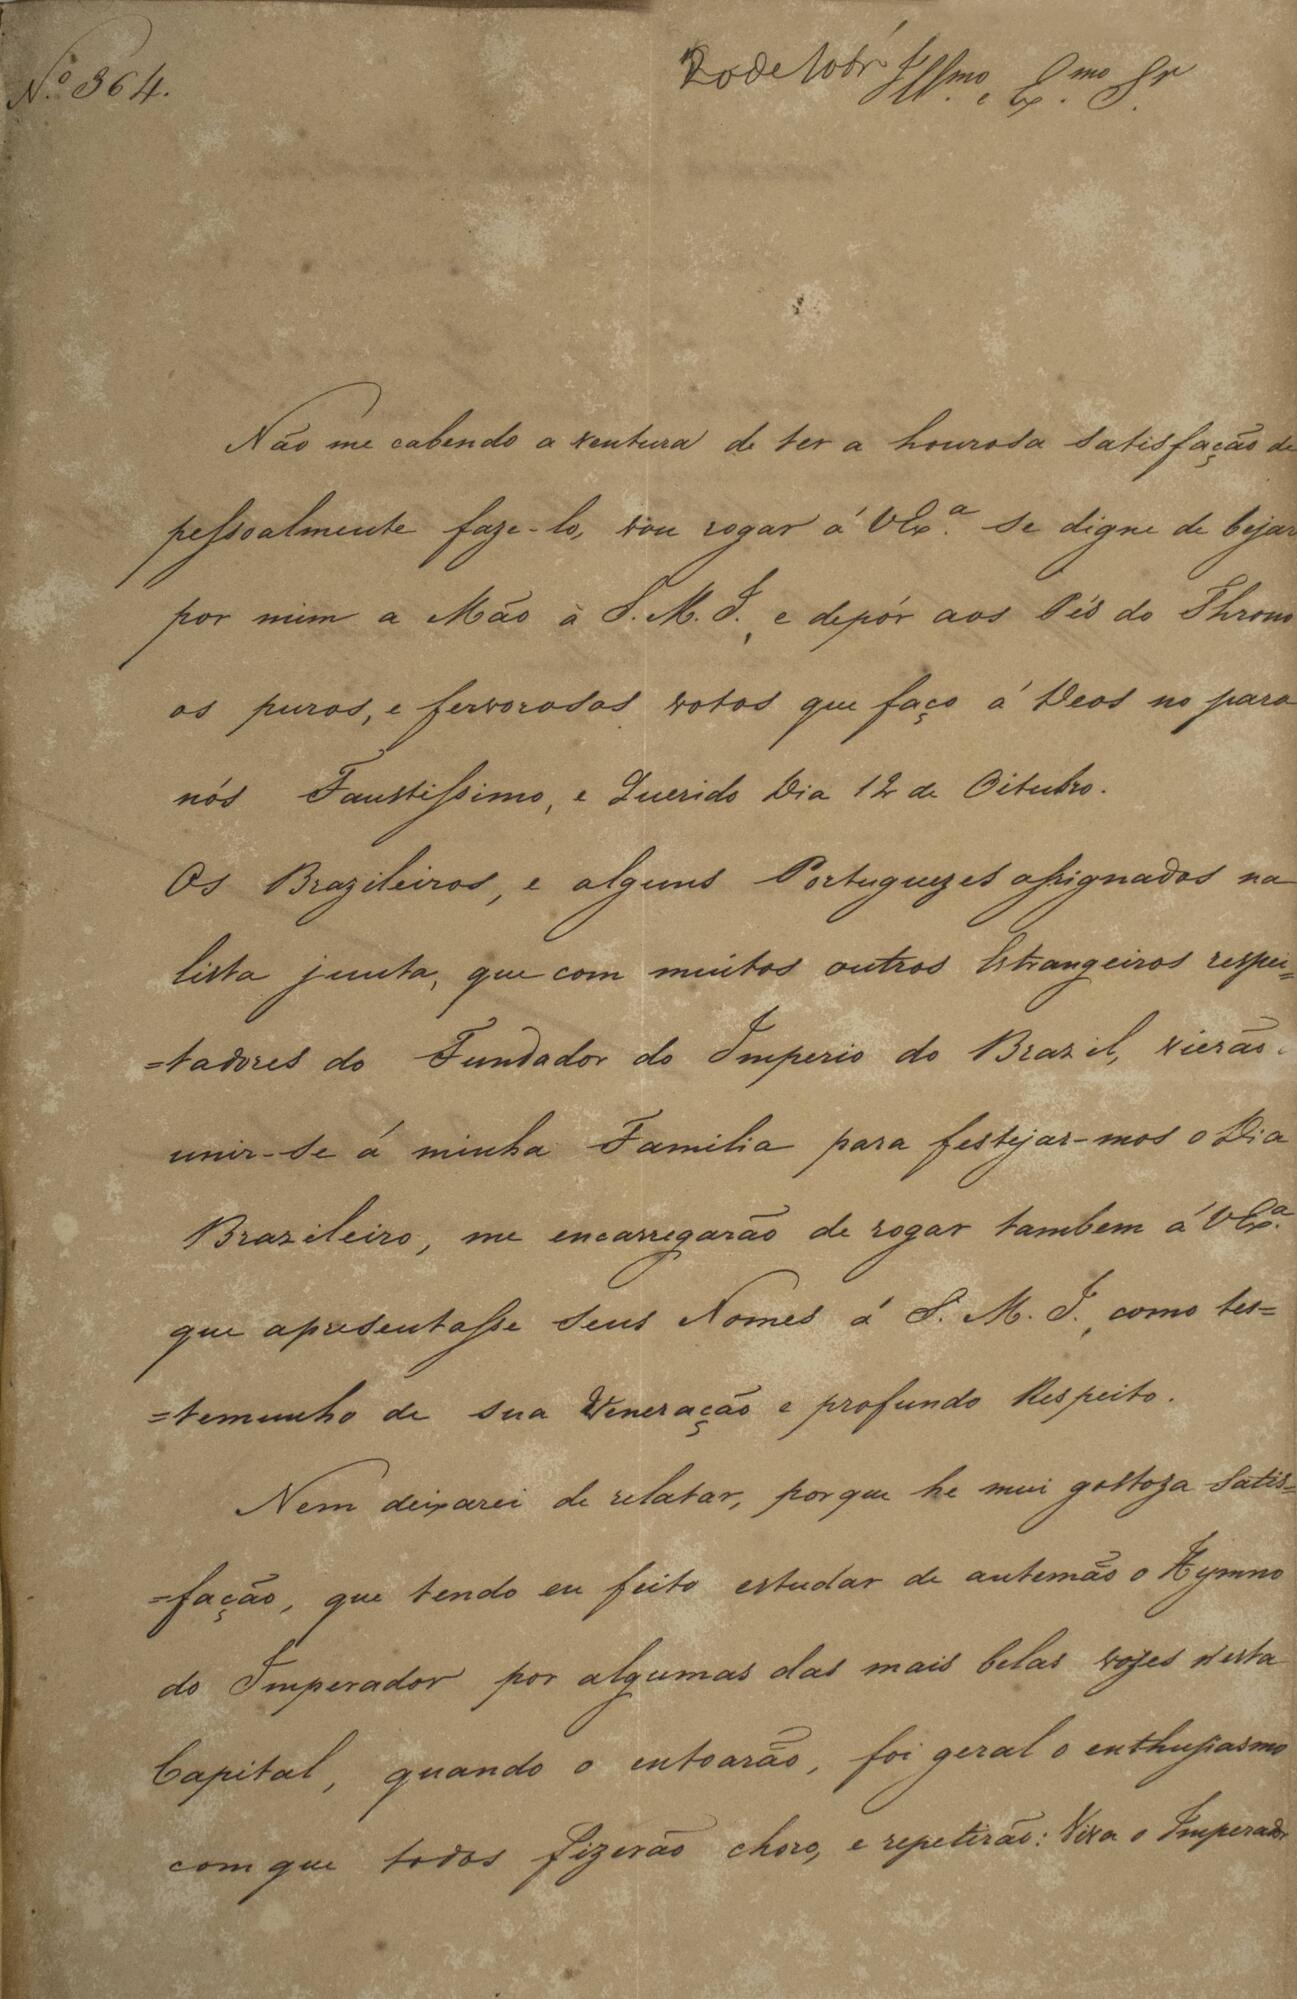 Nº 364.
Illmo. e Exmo. Sr.
Não me cabendo a ventura de ter a honrosa satisfação de
pessoalmente faze-lo, vou rogar á VExª. se digne de bejar
por mim a Mão á S. M. I., e depôr aos Pés do Throno
os puros, e fervorosos votos que faço á Deos no para
nós Faustissimo, e Querido Dia 12 de Oitubro.
Os Brazileiros, e alguns Portuguezes assignados na
lista junta, que com muitos outros Estrangeiros respei=
=tadores do Fundador do Imperio do Brazil, vierão
unir-se á minha Familia para festejar-mos o Dia
Brazileiro, me encarregarão de rogar tambem á VExª.
que apresentasse seus Nomes á S. M. I., como tes=
=temunho de sua Veneração e profundo Respeito.
Nem deixarei de relatar, porque he mui gostoza satis=
=fação, que tendo eu feito estudar de antemão o Hymno
do Imperador por algumas das mais belas vozes nesta
Capital, quando o entoarão, foi geral o enthusiasmo
com que todos fizerão choro, e repetirão: Viva o Imperador